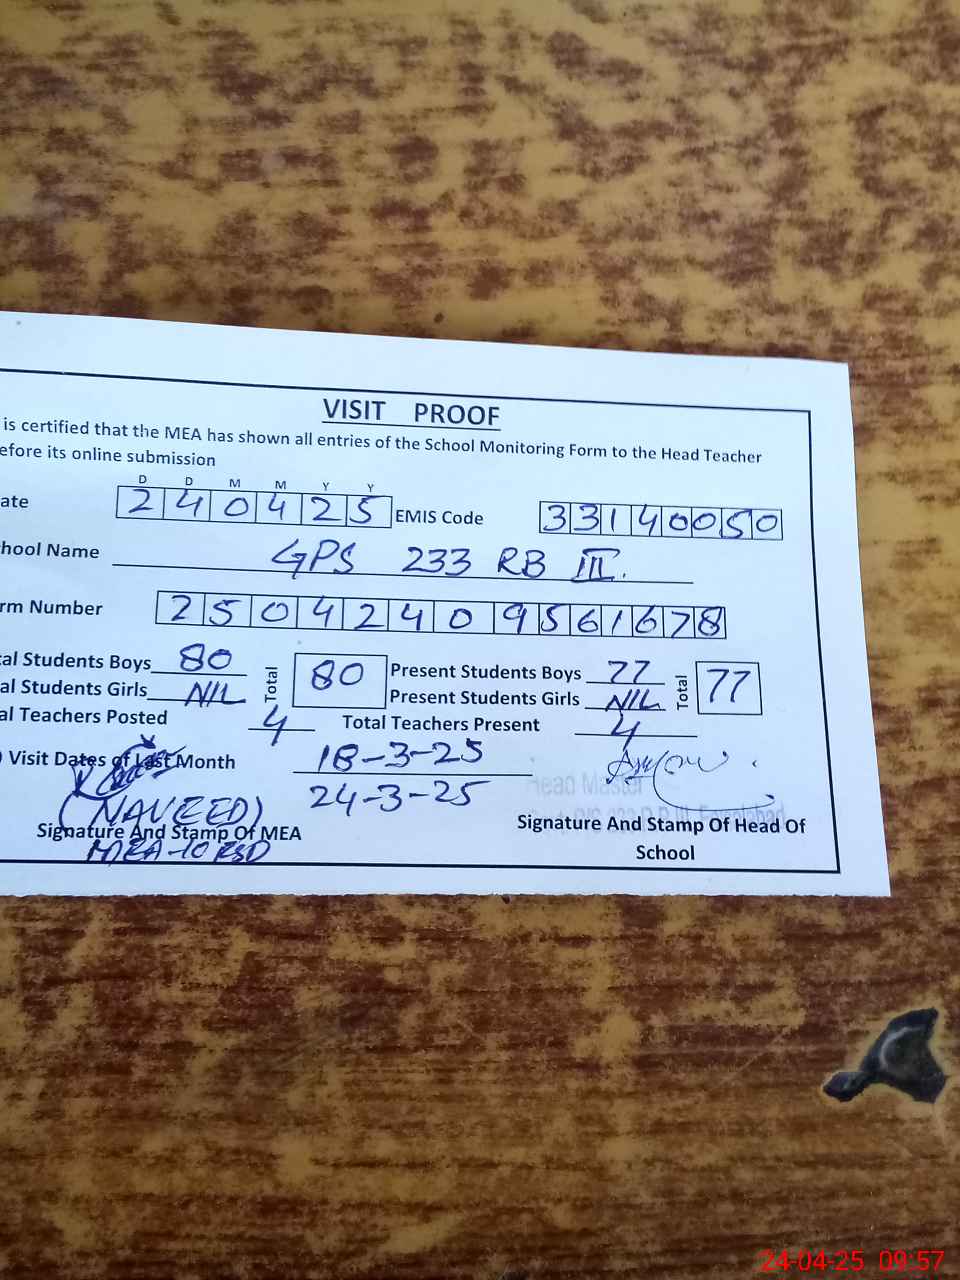 VISIT PROOF
is certified that the MEA has shown all entries of the School Monitoring Form to the Head Teacher
efore its online submission
D D M M Y Y
ate 240425 EMIS Code 33140050
hool Name GPS 233 RB III.
rm Number 25042409561678
al Students Boys 80 Total 80 Present Students Boys 77 Total 77
al Students Girls NIL Present Students Girls NIL
al Teachers Posted 4 Total Teachers Present 4
Visit Dates of Last Month 18-3-25
24-3-25
Head Master
(NAVEED)
Signature And Stamp Of MEA
Signature And Stamp Of Head Of
School
24-04-25 09:57